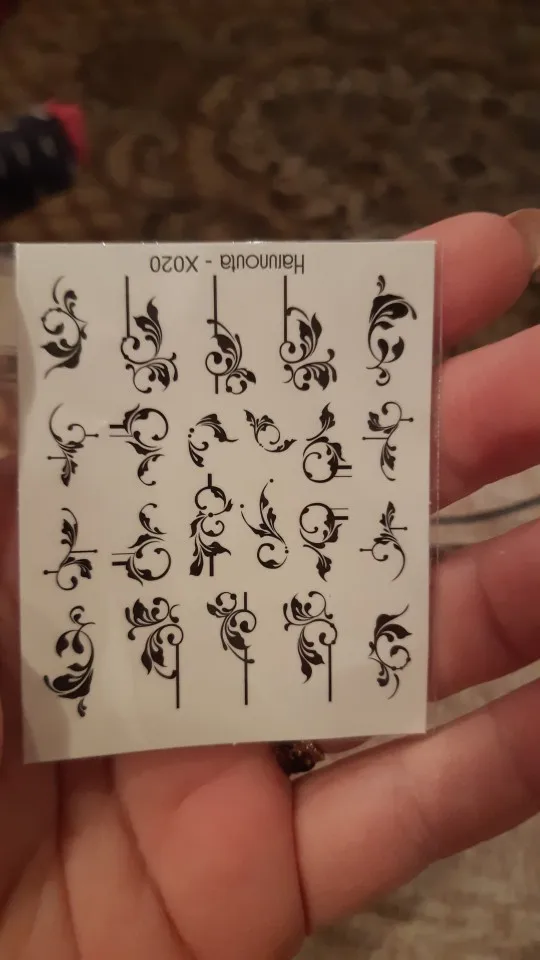 Harunouta - X020